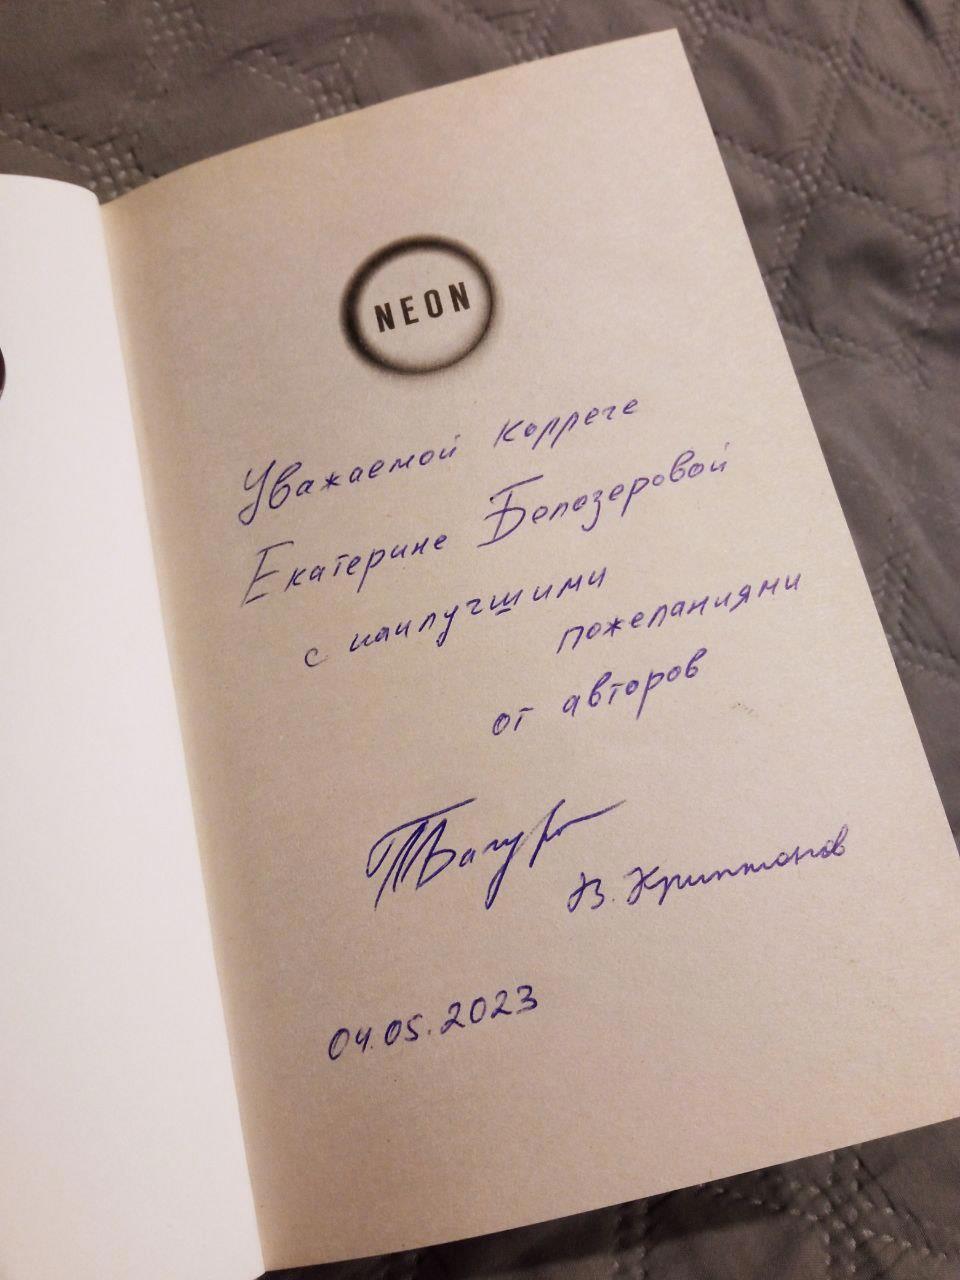 NEON
Уважаемой коллеге
Екатерине Белозеровой
с наилучшими
пожеланиями
от авторов
В. Криптонов
04.05.2023